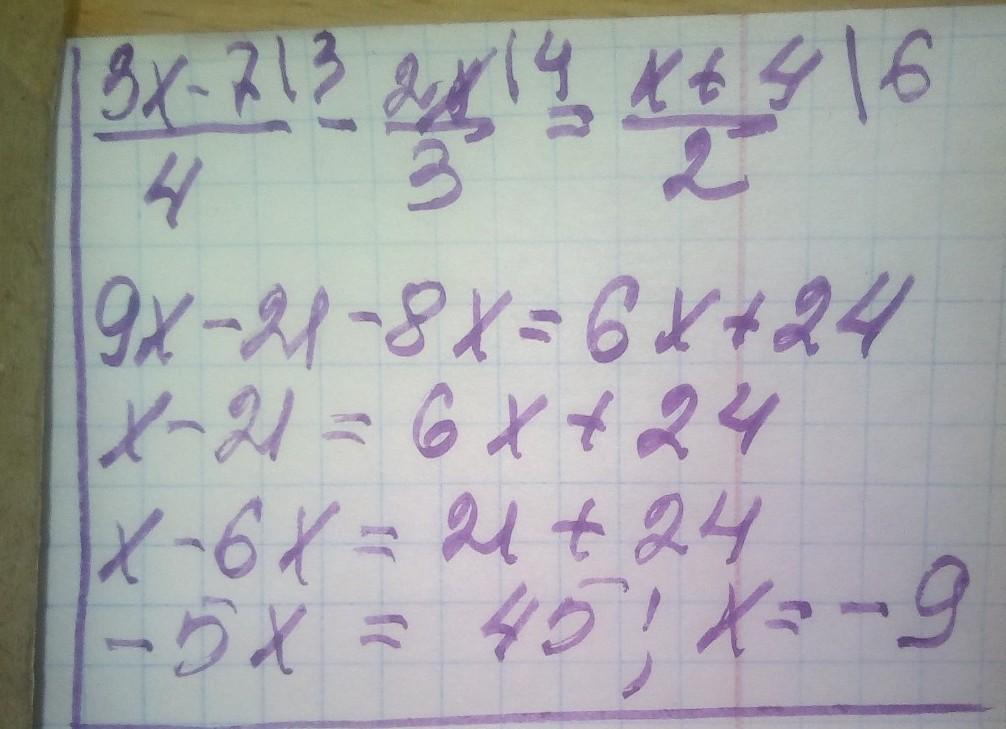 3x-7|3 - 2x|4 = x+4|6
4 3 2
9x-21-8x=6x+24
x-21=6x+24
x-6x=21+24
-5x=45; x=-9